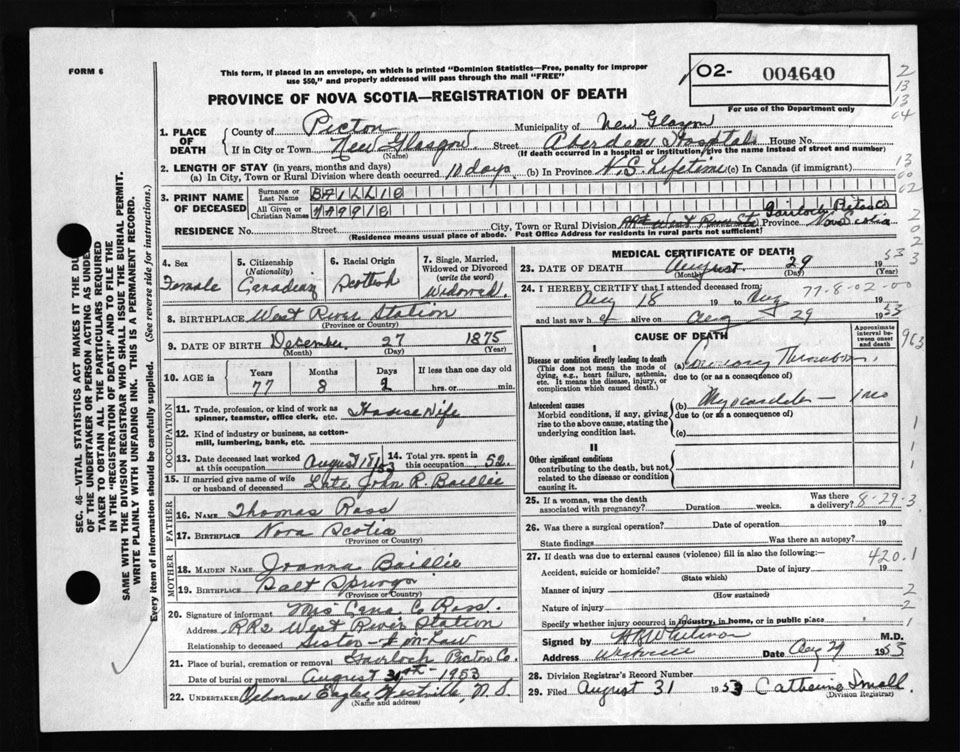 FORM 6
This form, if placed in an envelope, on which is printed "Dominion Statistics—Free, penalty for improper
use $50," and properly addressed will pass through the mail "FREE"
02- 004640
For use of the Department only
PROVINCE OF NOVA SCOTIA—REGISTRATION OF DEATH
2
13
13
04
1. PLACE OF DEATH County of Pictou Municipality of New Glasgow
If in City or Town New Glasgow (Name) Street Aberdeen Hospital House No.
(If death occurred in a hospital or institution, give the name instead of street and number)
2. LENGTH OF STAY (in years, months and days)
(a) In City, Town or Rural Division where death occurred 10 days (b) In Province N.S. Lifetime (c) In Canada (if immigrant)
13
00
02
3. PRINT NAME OF DECEASED Surname or Last Name BAILLIE
All Given or Christian Names
RESIDENCE No. Street City, Town or Rural Division West River Sta Gairloch Pictou Co Province Nova Scotia
(Residence means usual place of abode. Post Office Address for residents in rural parts not sufficient)
2
0
2
3
4. Sex Female
5. Citizenship (Nationality) Canadian
6. Racial Origin Scottish
7. Single, Married, Widowed or Divorced (write the word) Widowed
8. BIRTHPLACE West River Station
(Province or Country)
9. DATE OF BIRTH December 27 1875
(Month) (Day) (Year)
10. AGE in Years Months Days If less than one day old
77 8 2 hrs. or min.
OCCUPATION
11. Trade, profession, or kind of work as spinner, teamster, office clerk, etc. House Wife
12. Kind of industry or business, as cotton-mill, lumbering, bank, etc.
13. Date deceased last worked at this occupation August 18/53 14. Total yrs. spent in this occupation 52
15. If married give name of wife or husband of deceased Late John R. Baillie
FATHER
16. NAME Thomas Ross
17. BIRTHPLACE Nova Scotia
(Province or Country)
MOTHER
18. MAIDEN NAME Joanna Baillie
19. BIRTHPLACE Salt Springs
(Province or Country)
20. Signature of informant Mrs C. Ross.
Address RR2 West River Station
Relationship to deceased Sister-in-Law
21. Place of burial, cremation or removal Gairloch Pictou Co.
Date of burial or removal August 31st 1953
22. UNDERTAKER Osborne Eagles Westville, N.S.
(Name and address)
MEDICAL CERTIFICATE OF DEATH
23. DATE OF DEATH August 29 1953
(Month) (Day) (Year)
24. I HEREBY CERTIFY that I attended deceased from: 77-8-02-00
Aug 18 19 to Aug 19
and last saw h er alive on Aug 29 1953
CAUSE OF DEATH
Approximate interval between onset and death
963
I
Disease or condition directly leading to death
(This does not mean the mode of dying, e.g., heart failure, asthenia, etc. It means the disease, injury, or complication which caused death.)
(a) Coronary Thrombosis
due to (or as a consequence of)
Antecedent causes
Morbid conditions, if any, giving rise to the above cause, stating the underlying condition last.
(b) 1 mo
due to (or as a consequence of)
(c)
II
Other significant conditions
contributing to the death, but not related to the disease or condition causing it.
1
1
25. If a woman, was the death associated with pregnancy? Duration weeks. Was there a delivery? 8-29-3
26. Was there a surgical operation? Date of operation 19
State findings Was there an autopsy?
27. If death was due to external causes (violence) fill in also the following:— 420.1
Accident, suicide or homicide? Date of injury 19
(State which)
Manner of injury 2
(How sustained)
Nature of injury 2
Specify whether injury occurred in industry, in home, or in public place 1
Signed by M.D.
Address Westville Date Aug 29 1953
28. Division Registrar's Record Number
29. Filed August 31 1953 Catherine Small
(Division Registrar)
SEC. 46—VITAL STATISTICS ACT MAKES IT THE DUTY
OF THE UNDERTAKER OR PERSON ACTING AS UNDER-
TAKER TO OBTAIN ALL THE PARTICULARS REQUIRED
IN THE "REGISTRATION OF DEATH" AND TO FILE THE
SAME WITH THE DIVISION REGISTRAR WHO SHALL ISSUE THE BURIAL PERMIT.
WRITE PLAINLY WITH UNFADING INK. THIS IS A PERMANENT RECORD.
Every item of information should be carefully supplied. (See reverse side for instructions.)